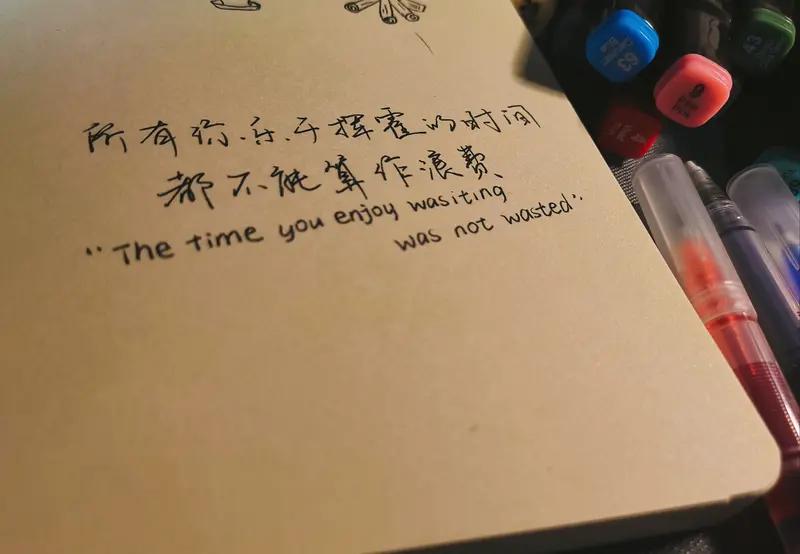 所有你乐于挥霍的时间
都不能算作浪费
"The time you enjoy wasiting
was not wasted"
63
43